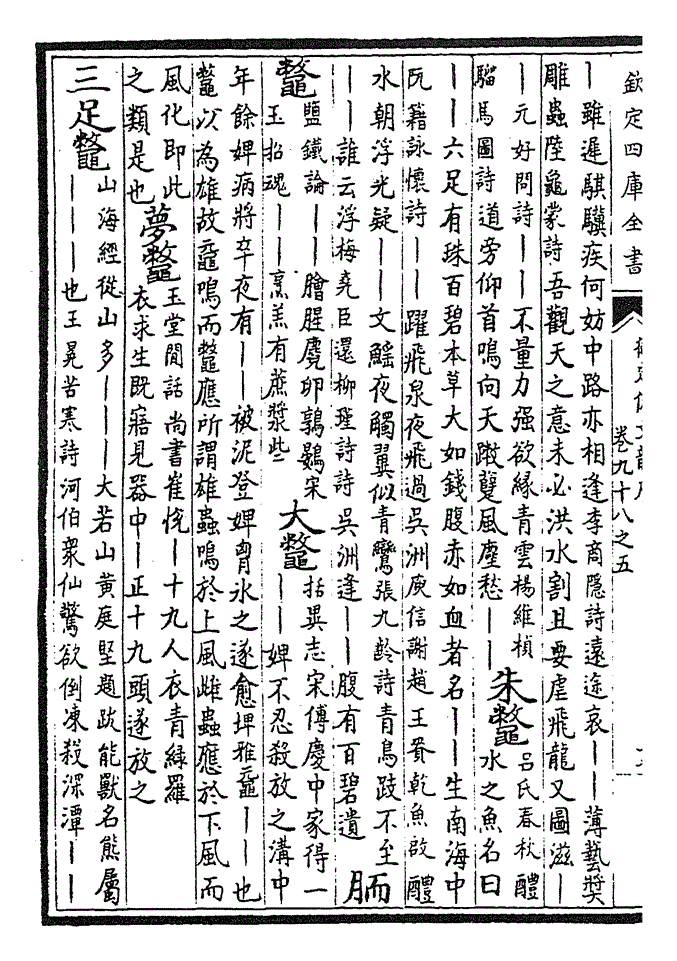 欽定四庫全書
卷九十八之五
丨雖遲騏驥疾何妨中路亦相逢李商隱詩遠途哀丨丨薄藝獎
雕蟲陸龜蒙詩吾觀天之意未必洪水割且要虐飛龍又圖滋丨
丨元好問詩丨丨不量力强欲緣青雲楊維楨
騮馬圖詩道旁仰首鳴向天蹴躄風塵愁丨丨
朱鼈
呂氏春秋醴
水之魚名曰
丨丨六足有珠百碧本草大如錢腹赤如血者名丨丨生南海中
阮籍詠懷詩丨丨躍飛泉夜飛過吳洲庾信謝趙王賚乾魚啟醴
水朝浮光疑丨丨文鰩夜觸翼似青鸞張九齡詩青鳥跂不至
丨丨誰云浮梅堯臣還柳瑾詩詩吳洲逢丨丨腹有百碧遺
胹
鼈
鹽鐵論丨丨膾腥麑卵鶉鷃宋
玉招魂丨丨烹羔有蔗漿些
大鼈
括異志宋傅慶中家得一
丨丨婢不忍殺放之溝中
年餘婢病將卒夜有丨丨被泥登婢胷氷之遂愈埤雅黿丨丨也
鼈以為雄故黿鳴而鼈應所謂雄蟲鳴於上風雌蟲應於下風而
風化即此
之類是也
夢鼈
玉堂閒話尚書崔恱丨十九人衣青綠羅
衣求生既寤見器中丨正十九頭遂放之
三足鼈
山海經從山多丨丨丨大若山黃庭堅題跋能獸名熊屬
丨丨丨也王冕苦寒詩河伯衆仙驚欲倒凍殺深潭丨丨